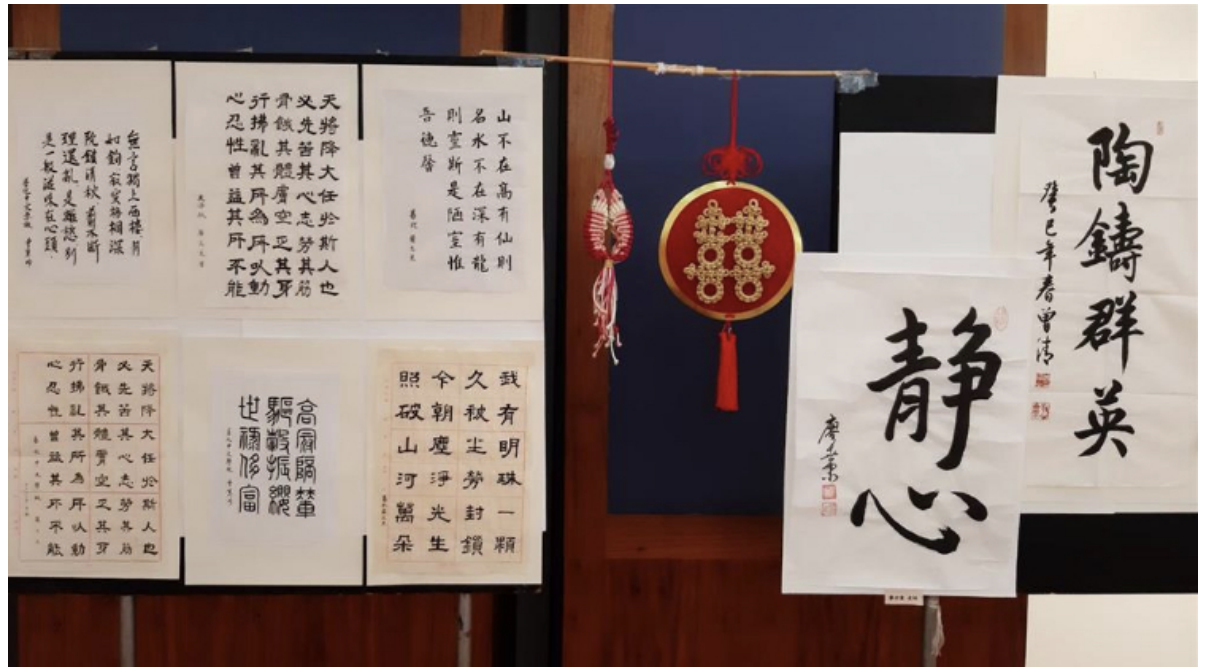 無言獨上西樓月
如鉤寂寞梧桐深
院鎖清秋剪不斷
理還亂是離愁別
是一般滋味在心頭
天將降大任於斯人也
必先苦其心志勞其筋
骨餓其體膚空乏其身
行拂亂其所為所以動
心忍性曾益其所不能
山不在高有仙則
名水不在深有龍
則靈斯是陋室惟
吾德馨
天將降大任於斯人也
必先苦其心志勞其筋
骨餓其體膚空乏其身
行拂亂其所為所以動
心忍性曾益其所不能
高冠陪輦
驅轂振纓
世祿侈富
我有明珠一顆
久被尘勞封鎖
今朝塵淨光生
照破山河萬朵
囍
静心
陶鑄群英
癸巳年春曾清